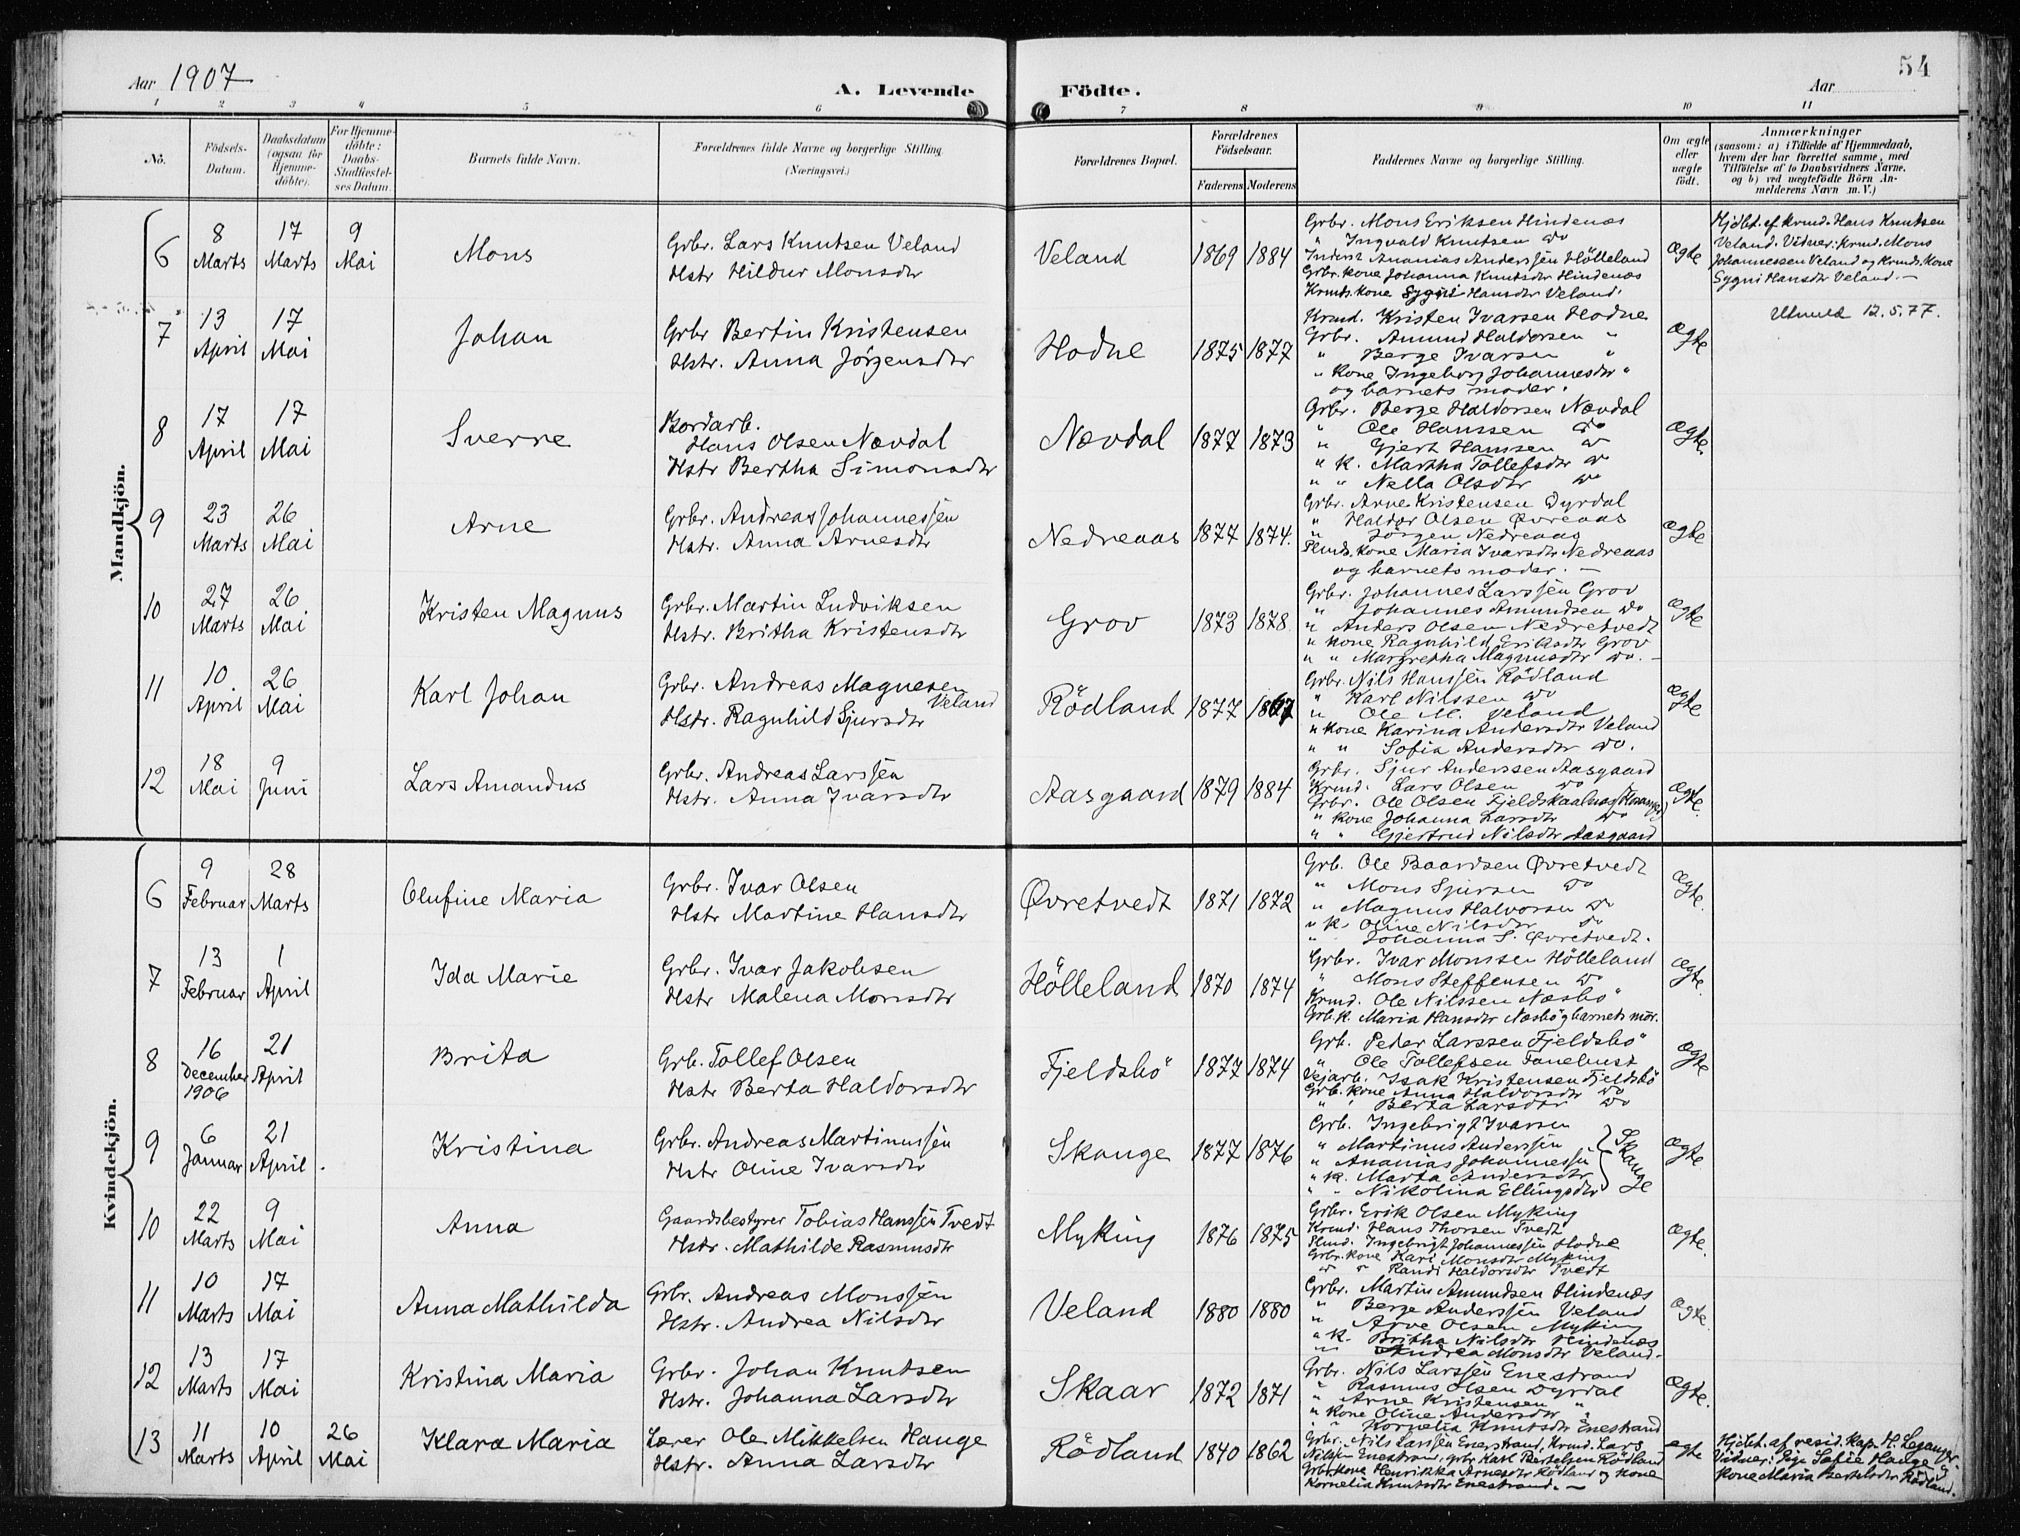 54
Aar 1907
A. Levende
Födte.
Aar
1 2 3 4 5 6 7 8 9 10 11
No.
Födsels-Datum.
Daabsdatum (ogsaa för Hjemmedöbte).
For Hjemmedöbte: Daabs-Stadfæstelses Datum.
Barnets fulde Navn.
Forældrenes fulde Navne og borgerlige Stilling.
(Næringsvei.)
Forældrenes Bopæl.
Forældrenes Födselsaar.
Faderens Moderens
Faddernes Navne og borgerlige Stilling.
Om ægte eller uægte födt.
Anmærkninger
(saasom: a) i Tilfælde af Hjemmedaab,
hvem der har forrettet samme, med
Tilföielse af to Daabsvidners Navne,
og b) ved uægtefödte Börn An-
melderens Navn m. V.)
Mandkjön.
6
8 Marts
17 Marts
9 Mai
Mons
Grbr. Lars Knutsen Veland
Hstr Hildur Monsdtr
Veland
1869 1884
Grbr. Mons Eriksen Hindenæs
" Ingvald Knutsen do
Inderst Ananias Anderssen Hölleland
Grbr. kone Johanna Knutsdtr Hindenæs
Krmds. kone Sygni Hansdtr Veland.
Ægte
Hjdbt. af krmd. Hans Knutsen
Veland. Vidner: krmd. Mons
Johannessen Veland og Krmds. kone
Sygni Hansdtr Veland.—
7
13 April
17 Mai
Johan
Grbr Bertin Kristensen
Hstr. Anna Jörgensdtr
Hodne
1875 1877
Krmd. Kristen Ivarsen Hodne
Grbr. Amund Haldorsen "
" Berge Ivarsen "
" kone Ingeborg Johannesdtr "
og barnets moder.
Ægte
Utmeld 12.5.77.
8
17 April
17 Mai
Sverre
Bordarb.
Hans Olsen Nævdal
Hstr Bertha Simonsdtr
Nævdal
1877 1873
Grbr. Berge Haldorsen Nævdal
" Ole Hanssen do
" Gjert Hanssen do
" k. Martha Tollefsdtr do
" " Nella Olsdtr do
Ægte.
9
23 Marts
26 Mai
Arne
Grbr. Andreas Johannessen
Hstr. Anna Arnesdtr
Nedreaas
1877 1874.
Grbr. Arne Kristensen Dyrdal
" Haldor Olsen Øvreaas
" Jörgen Nedreaas
Plmds. kone Maria Ivarsdtr Nedreaas
og barnets moder. —
Ægte
10
27 Marts
26 Mai
Kristen Magnus
Grbr. Martin Ludviksen
Hstr. Britha Kristensdtr
Grov
1873 1878
Grbr. Johannes Larssen Grov
" Johannes Amundsen do
" Anders Olsen Nedretvedt
" kone Ragnhild Eriksdtr Grov
" " Margretha Magnusdtr do. —
Ægte
11
10 April
26 Mai
Karl Johan
Grbr. Andreas Magnesen
Veland
Hstr. Ragnhild Sjursdtr
Rödland
1877 1867
Grbr. Nils Hanssen Rödland
" Karl Nilssen do
" Ole M. Veland
" kone Karina Andersdtr Veland
" " Sofia Andersdtr do.
Ægte
12
18 Mai
9 Juni
Lars Amandus
Grbr. Andreas Larssen
Hstr. Anna Ivarsdtr
Aasgaard
1879 1884
Grbr. Sjur Anderssen Aasgaard
Krmd. Lars Olsen do
Grbr. Ole Olsen Fjeldskaalnes
" kone Johanna Larsdtr do
" " Gjertrud Nilsdtr Aasgaard
Ægte.
Kvindekjön.
6
9 Februar
28 Marts
Olufine Maria
Grbr. Ivar Olsen
Hstr Martine Hansdtr
Øvretvedt
1871 1872
Grb. Ole Baardsen Øvretvedt
" Mons Sjursen do
" Magnus Halvorsen do
" k. Oline Nilsdtr do
" Johanna S. Øvretvedt.
Ægte.
7
13 Februar
1 April
Ida Marie
Grbr. Ivar Jakobsen
Hstr Malena Monsdtr
Hölleland
1870 1874
Grbr. Ivar Monssen Hölleland
" Mons Steffensen do
Krmd. Ole Nilssen Næsbö
Grb. k. Maria Hansdtr Næsbö og barnets mor.
Ægte.
8
16 December 1906
21 April
Brita
Grb. Tollef Olsen
Hstr Berta Haldorsdtr
Fjeldsbö
1877 1874
Grb. Peder Larssen Fjeldsbö
" Ole Tollefsen Fanebust
Vejarb. Isak Kristensen Fjeldsbö
Grb. kone Anna Haldorsdtr do
" Berta Larsdtr do
Ægte
9
6 Januar
21 April.
Kristina
Grbr. Andreas Martinussen
Hstr Oline Ivarsdtr
Skauge
1877 1876
Grb. Ingebrigt Ivarsen
" Martinus Anderssen
" Ananias Johannessen
" k. Marta Andersdtr
" " Nikolina Ellingsdtr
Skauge
Ægte.
10
22 Marts
9 Mai
Anna
Gaardsbestyrer Tobias Hanssen Tvedt
Hstr. Mathilde Rasmusdtr
Myking
1876 1875
Grbr. Erik Olsen Myking
Krmd. Hans Thorsen Tvedt
Plmd. Ingebrigt Johannessen Hodne
Grbr. kone Kari Monsdtr Myking
" " Randi Haldorsdtr Tvedt
Ægte.
11
10 Marts
17 Mai
Anna Mathilda
Grbr. Andreas Monssen
Hstr. Andrea Nilsdtr
Veland
1880 1880
Grbr. Martin Amundsen Hindenæs
" Berge Anderssen Veland
" Arve Olsen Myking
" k. Britha Nilsdtr Hindenæs
" " Andrea Monsdtr Veland.
Ægte.
12
13 Marts
17 Mai
Kristina Maria
Grbr. Johan Knutsen
Hstr. Johanna Larsdtr
Skaar
1872 1871
Grbr. Nils Larssen Enestrand
" Rasmus Olsen Dyrdal
" Arne Kristensen "
" kone Oline Andersdtr "
" Kornelia Knutsdtr Enestrand
Ægte.
13
11 Marts
10 April
26 Mai
Klara Maria
Lærer Ole Mikkelsen Hauge
Hstr. Anna Larsdtr
Rödland
1840 1862
Grbr. Nils Larssen Enestrand, Krmd. Lars
Nilssen Enestrand, grbr. Karl Bertelsen Rödland
Grbr. kone Henrikka Arnesdtr Rödland og kone
Kornelia Knutsdtr Enestrand. —
ægte
Hjdbt. af resid. kap. H. Leganger.
Vidner: Pige Sofie Hauge og
kone Maria Bertelsdtr Rödland.